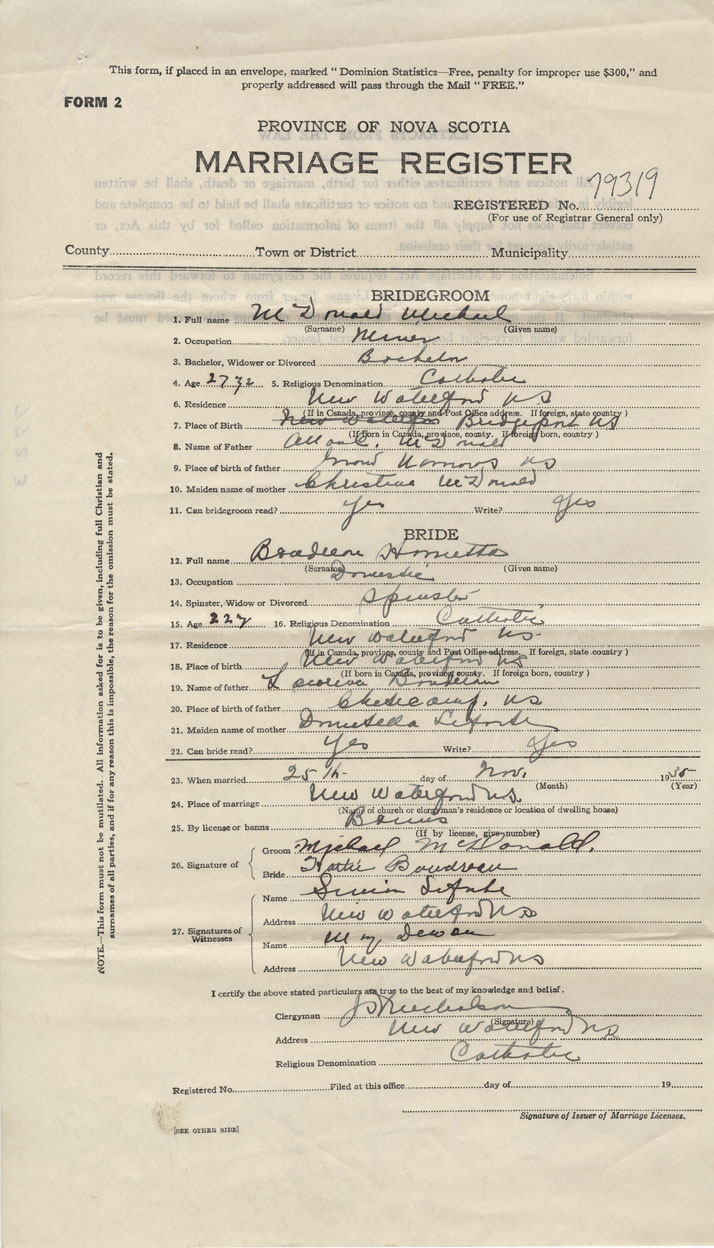 This form, if placed in an envelope, marked "Dominion Statistics—Free, penalty for improper use $300," and
properly addressed will pass through the Mail "FREE."
FORM 2
PROVINCE OF NOVA SCOTIA
MARRIAGE REGISTER
79319
REGISTERED No.
(For use of Registrar General only)
County Town or District Municipality
BRIDEGROOM
1. Full name McDonald Michael
(Surname) (Given name)
2. Occupation Miner
3. Bachelor, Widower or Divorced Bachelor
4. Age 27 5. Religious Denomination Catholic
6. Residence New Waterford NS
(If in Canada, province, county and Post Office address. If foreign, state country)
7. Place of Birth New Waterford Bridgeport NS
(If born in Canada, province, county. If foreign born, country)
8. Name of Father McDonald
9. Place of birth of father NS
10. Maiden name of mother Christina McDonald
11. Can bridegroom read? yes Write? yes
BRIDE
12. Full name Boudreau Henrietta
(Surname) (Given name)
13. Occupation Domestic
14. Spinster, Widow or Divorced Spinster
15. Age 22 16. Religious Denomination Catholic
17. Residence New Waterford NS
(If in Canada, province, county and Post Office address. If foreign, state country)
18. Place of birth New Waterford NS
(If born in Canada, province, county. If foreign born, country)
19. Name of father
20. Place of birth of father Cheticamp, NS
21. Maiden name of mother
22. Can bride read? Yes Write? Yes
23. When married 25th day of Nov. 1935
(Month) (Year)
24. Place of marriage New Waterford NS.
(Name of church or clergyman's residence or location of dwelling house)
25. By license or banns Banns
(If by license, give number)
26. Signature of
Groom Michael McDonald.
Bride Hattie Boudreau
27. Signatures of Witnesses
Name Simon
Address New Waterford NS
Name
Address New Waterford NS
I certify the above stated particulars are true to the best of my knowledge and belief.
Clergyman Nicholson
(Signature)
Address New Waterford NS
Religious Denomination Catholic
Registered No. Filed at this office day of 19
Signature of Issuer of Marriage Licenses.
[SEE OTHER SIDE]
NOTE.—This form must not be mutilated. All information asked for is to be given, including full Christian and
surnames of all parties, and if for any reason this is impossible, the reason for the omission must be stated.